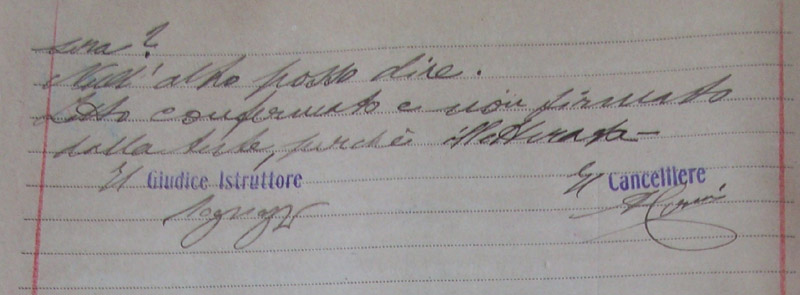 sera?
Null'altro posso dire.
Letto confermato e non firmato
dalla teste, perché illetterata
Il Giudice Istruttore
Il Cancelliere